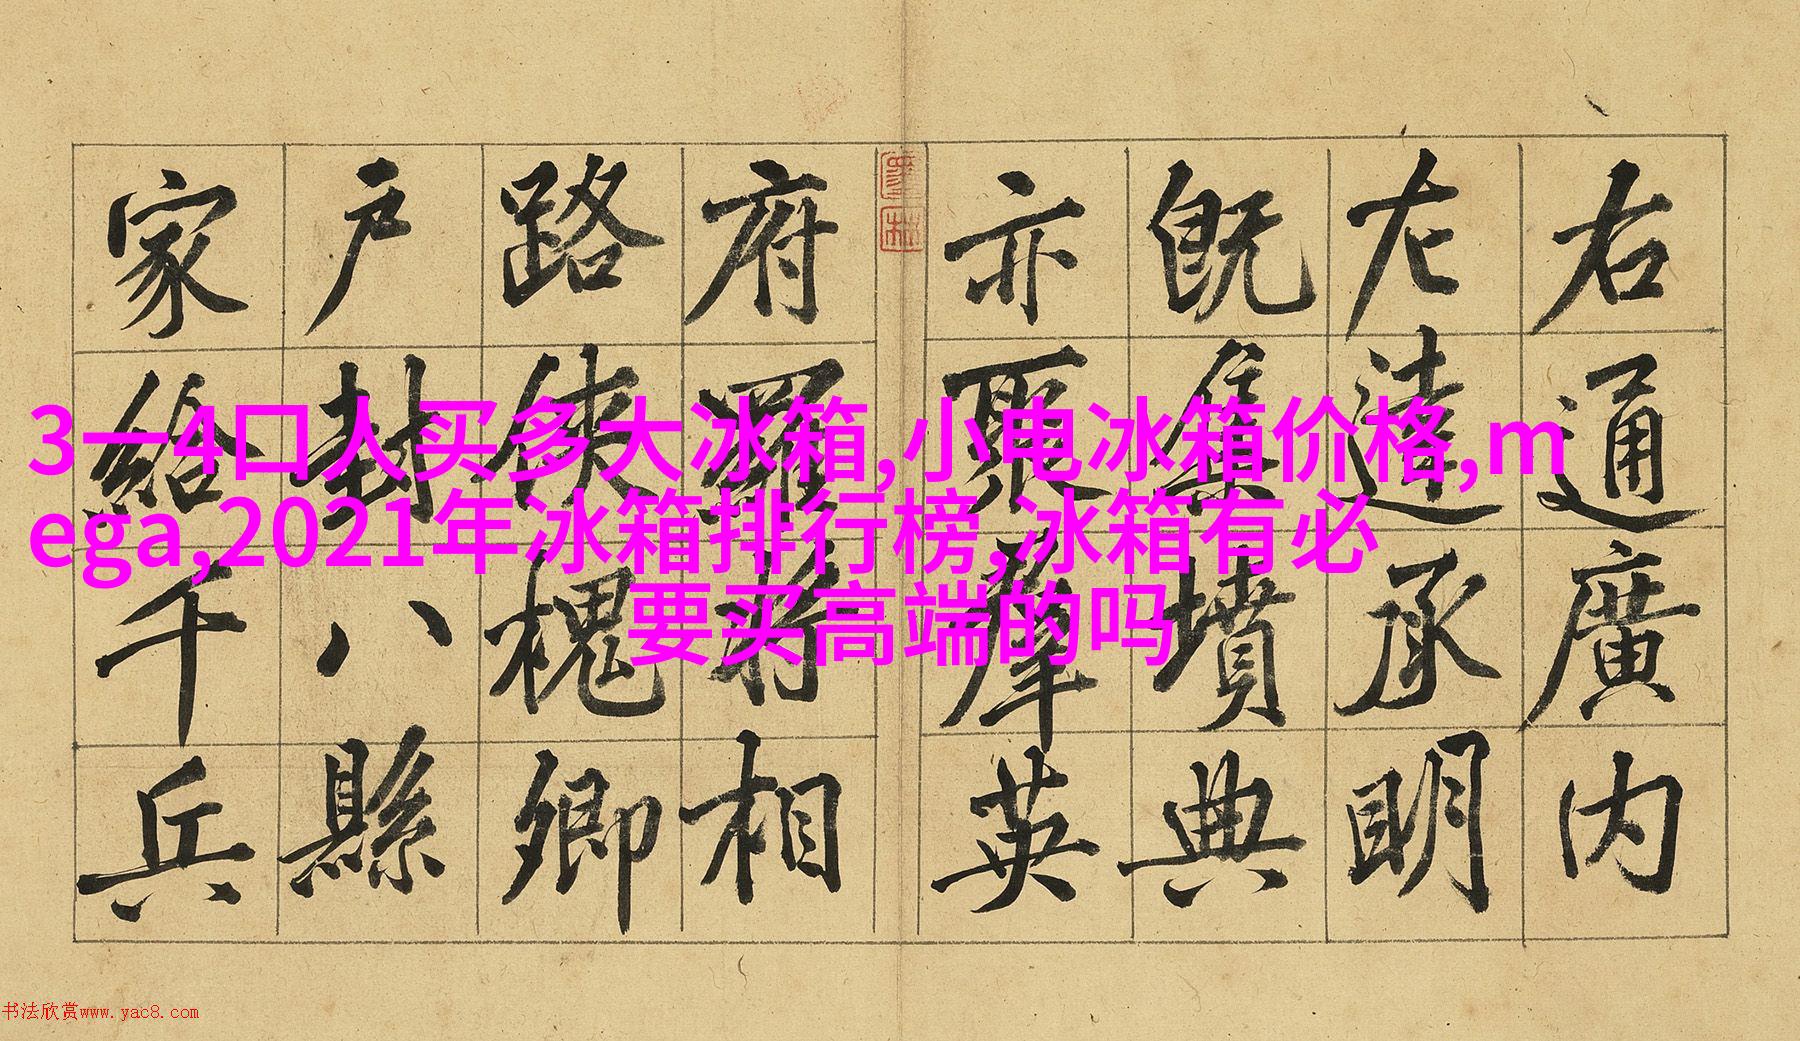 右通廣内
左達承明
既集墳典
亦聚群英
府羅将相
路侠槐卿
户封八縣
家給千兵
3一4口人买多大冰箱,小电冰箱价格,m
ega,2021年冰箱排行榜,冰箱有必
要买高端的吗
书法欣赏www.yac8.com